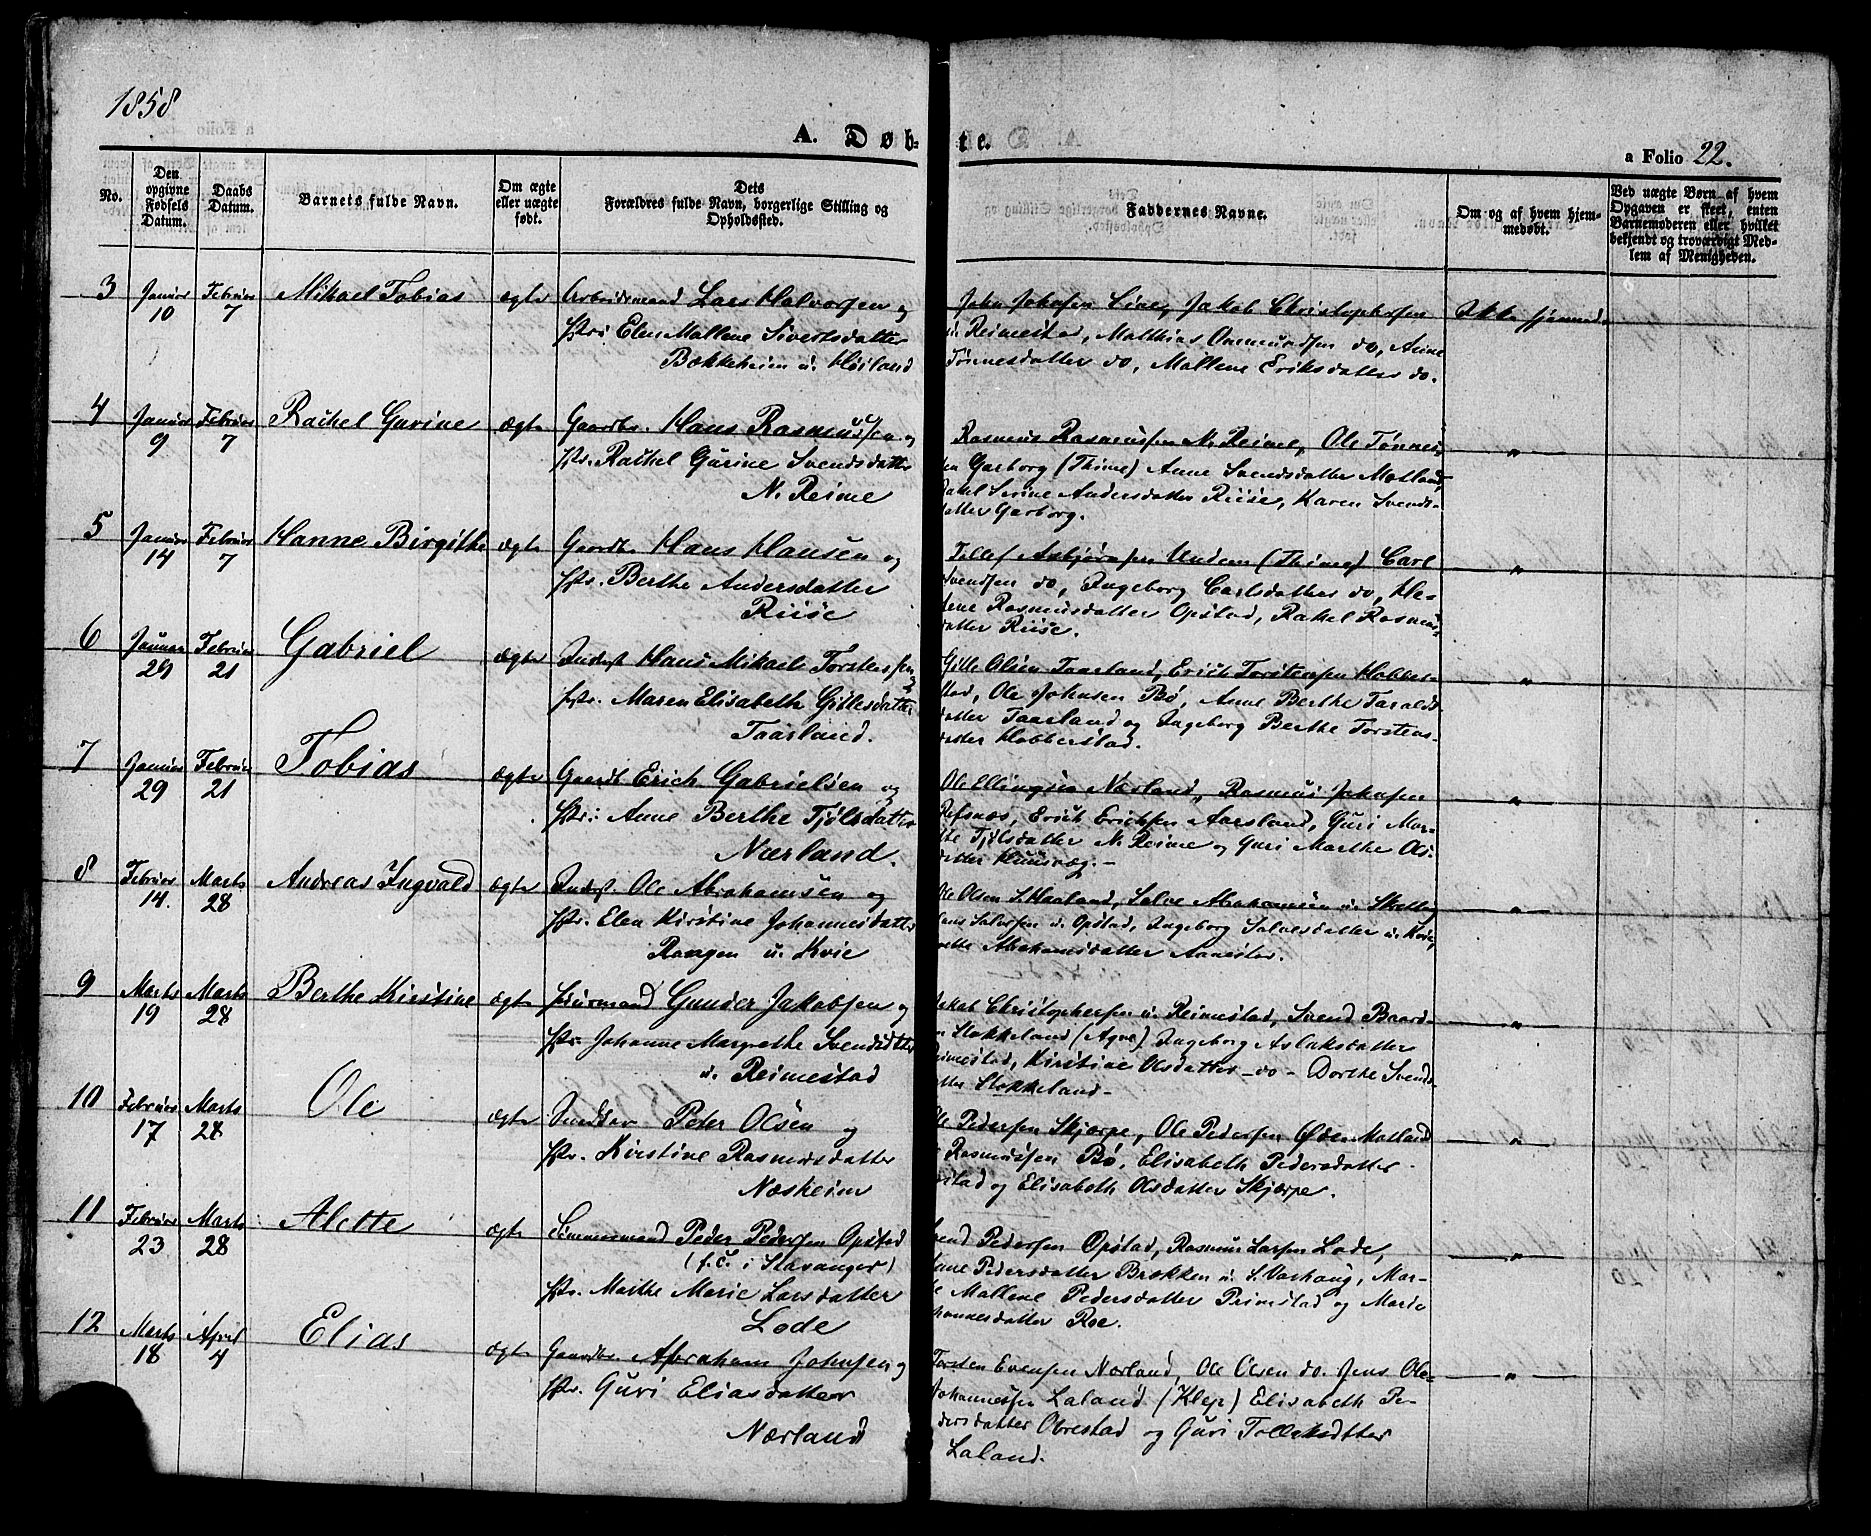 1858
A. Døb-
te.
a Folio 22.
No.
Den opgivne Fødsels Datum.
Daabs Datum.
Barnets fulde Navn.
Om ægte eller uægte født.
Dets Forældres fulde Navn, borgerlige Stilling og Opholdssted.
Faddernes Navne.
Om og af hvem hjemmedøbt.
Ved uægte Børn af hvem Opgaven er skeet, enten Barnemoderen eller hvilket bekjendt og troværdigt Medlem af Menigheden.
3 Januar 10 Februar 7 Mikael Tobias ægte Arbeidsmand Lars Halvorsen og
Hstr: Elen Mallene Sivertsdatter
Bokkeheim u. Høiland
John Johnsen Line, Jakob Christophersen
u. Reimestad, Matthias Onmundsen do, Anne
Tønnesdatter do, Mallene Eriksdatter do.
Ikke hjemmed.
4 Januar 9 Februar 7 Rachel Gurine ægte Gaardbr. Hans Rasmussen og
Hstr. Rachel Gurine Svendsdatter
N. Reime
Rasmus Rasmussen N. Reime, Ole Tønnes-
sen Garborg (Thime) Anne Svendsdatter Motland,
Rakel Serine Andersdatter Riise, Karen Svends-
datter Garborg.
"
5 Januar 14 Februar 7 Hanne Birgithe ægte Gaardb. Hans Hansen og
Hstr. Berthe Andersdatter
Riise
Tollef Asbjørnsen Undem (Thime) Carl
Svendsen do, Ingeborg Carlsdatter do, He-
lene Rasmusdatter Opstad, Rakel Rasmus-
datter Riise.
"
6 Januar 29 Februar 21 Gabriel ægte Inderst Hans Mikael Torstensen og
Hstr. Maren Elisabeth Gitlesdatter
Taarland.
Gitle Olsen Taarland, Erich Torstensen Hobber-
stad, Ole Johnsen Bø, Anne Berthe Taralds-
datter Taarland og Ingeborg Berthe Torstens-
datter Hobberstad.
"
7 Januar 29 Februar 21 Tobias ægte Gaardb. Erich Gabrielsen og
Hstr: Anne Berthe Tjølsdatter
Nærland.
Ole Ellingsen Nærland, Rasmus Johnsen
Refsnæs, Erich Erichsen Aarsland, Guri Mar-
the Tjølsdatter N. Reime og Guri Marthe Ols-
datter Huusvæg.-
"
8 Februar 14. Marts 28 Andreas Ingvald ægte Inderst. Ole Abrahamsen og
Hstr. Elen Kirstine Johannesdatter
Rongen u. Kvie
Ole Olsen S. Haaland, Salve Abrahamsen u.
u. Opstad, Ingeborg Salvesdatter u.
Abrahamsdatter Aanestad.
"
9 Marts 19 Marts 28 Berthe Kirstine ægte Huusmand Gunder Jakobsen og
Hstr. Johanne Margrethe Svendsdtter
u. Reimestad
Jakob Christophersen u. Reimestad, Svend Baard-
sen Stokkeland (Ogne) Ingeborg Aslaksdatter
Reimestad, Kirstine Olsdatter - do - Dorthe Svends-
datter Stokkeland-
"
10 Februar 17 Marts 28 Ole ægte Peder Olsen og
Hstr. Kirstine Rasmusdatter
Næsheim
Ole Pedersen Skjærpe, Ole Pedersen Øden Motland
Rasmussen Bø, Elisabeth Pedersdatter
og Elisabeth Olsdatter Skjærpe.
"
11 Februar 23 Marts 28 Alette ægte Tømmermand Peder Pedersen Opstad
(f. C. i Stavanger)
Hstr. Marthe Marie Larsdatter
Lode
Svend Pedersen Opstad, Rasmus Larsen Lode,
Anne Pedersdatter Brækken u. S. Varhaug, Mar-
the Mallene Pedersdatter Primestad og Marie
Johannesdatter Roe.
"
12 Marts 18 April 4 Elias ægte Gaardbr. Abraham Johnsen og
Hstr. Guri Eliasdatter
Nærland
Torsten Evensen Nærland, Ole Olsen do. Jens Ole
Johannessen Laland (Klep) Elisabeth Pe-
dersdatter Obrestad og Guri Tollaksdtter
Laland.
"